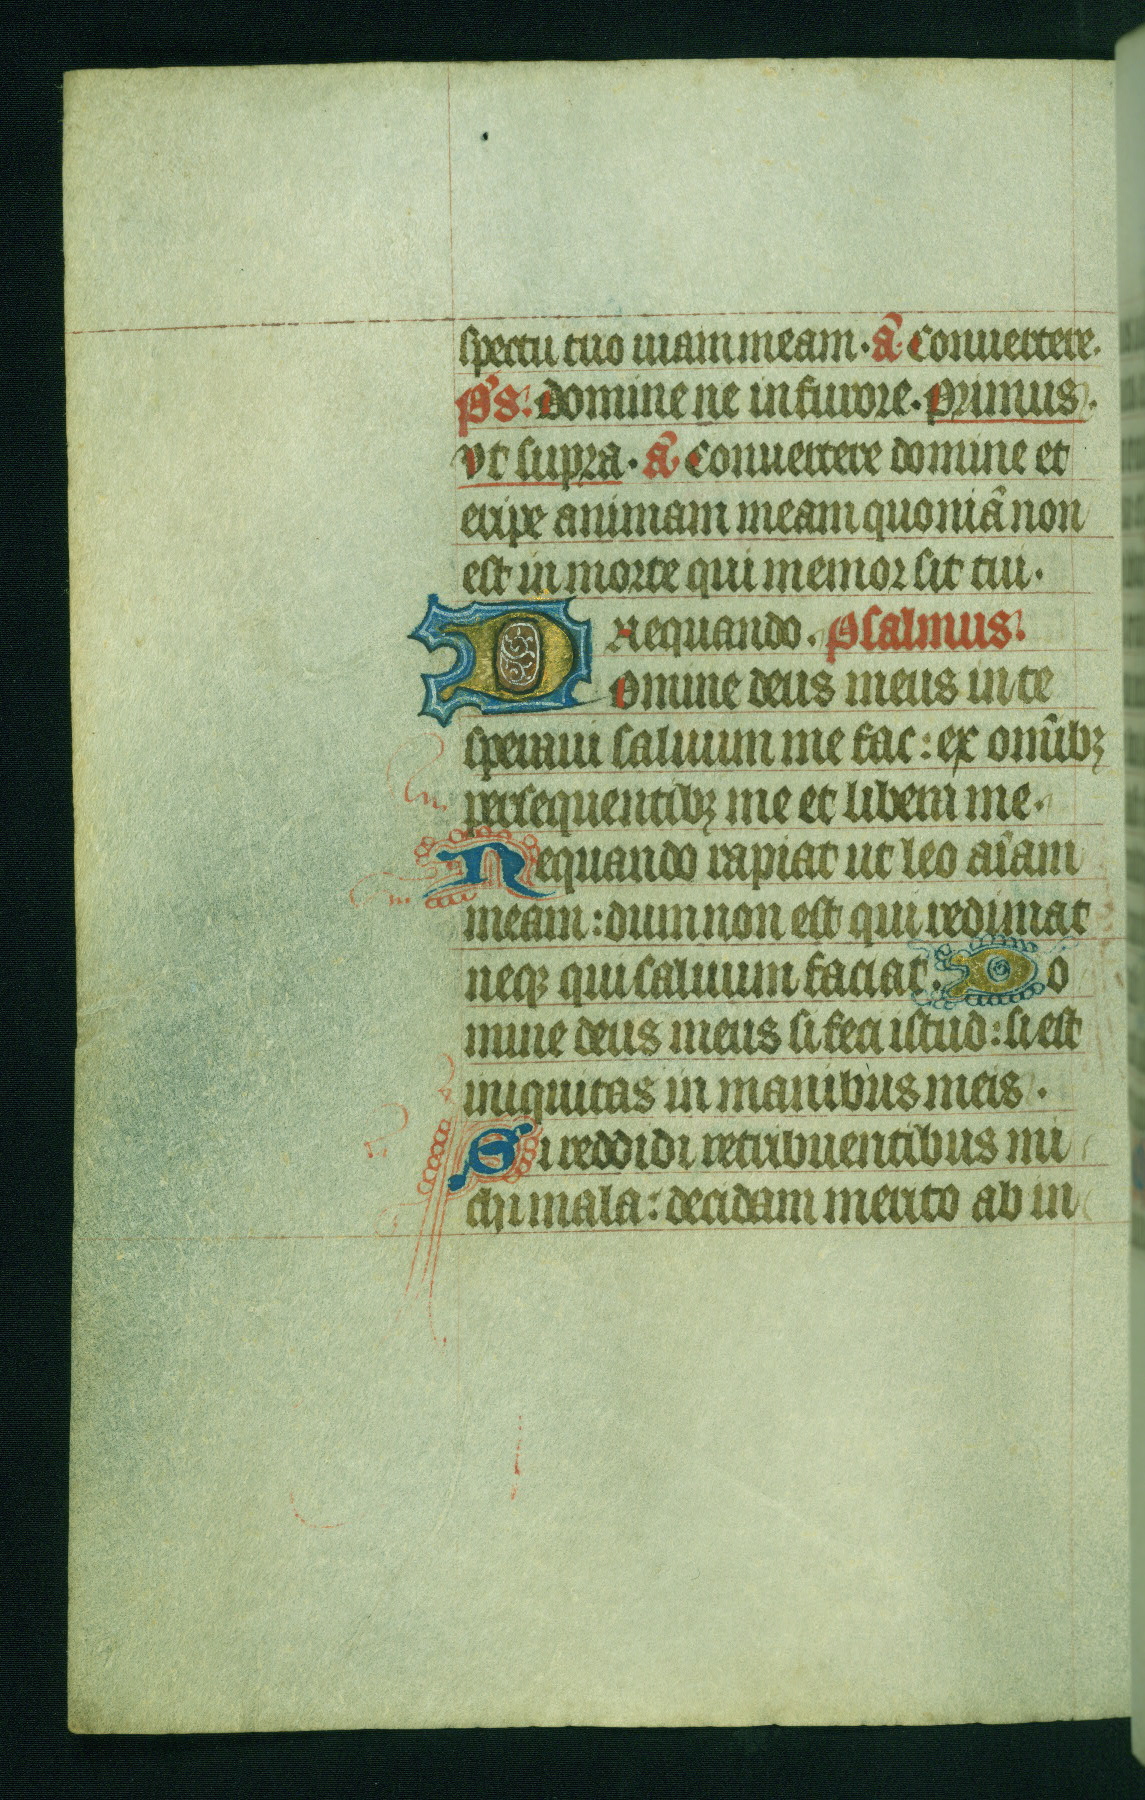 spectu tuo uiam meam. ā. Conuertere.
p̄s. Domine ne in furore. primus.
vt supra. ā. Conuertere domine et
eripe animam meam quoniā non
est in morte qui memor sit tui.
Nequando. psalmus.
Domine deus meus in te
speraui saluum me fac: ex omībꝫ
persequentibꝫ me et libera me.
Nequando rapiat ut leo aīam
meam: dum non est qui redimat
neqꝫ qui saluum faciat. Do
mine deus meus si feci istud: si est
iniquitas in manibus meis.
Si reddidi retribuentibus mi
chi mala: decidam merito ab in